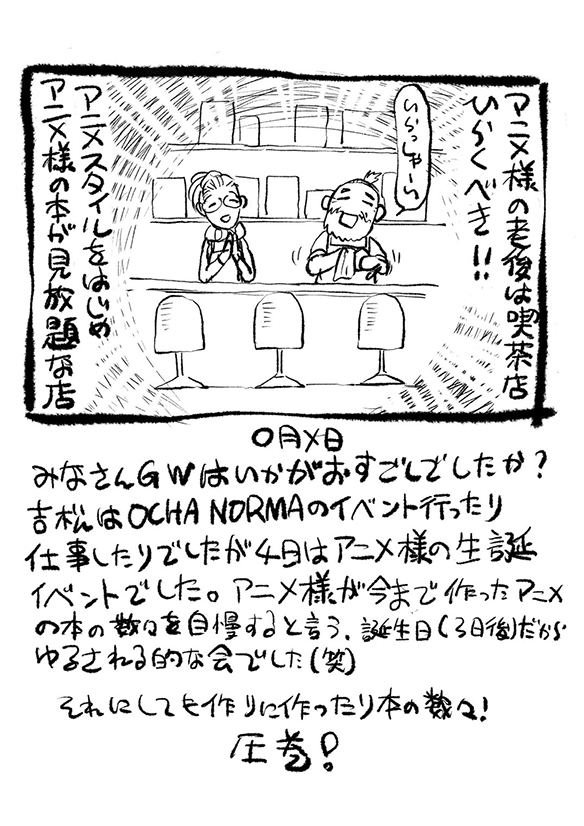 アニメ様の老後は喫茶店
ひらくべき!!
いらっしゃーい
アニメスタイルをはじめ
アニメ様の本が見放題な店
〇月×日
みなさんGWはいかがおすごしでしたか?
吉松はOCHA NORMAのイベント行ったり
仕事したりでしたが4日はアニメ様の生誕
イベントでした。アニメ様が今まで作ったアニメ
の本の数々を自慢すると言う、誕生日(3日後)だから
ゆるされる的な会でした(笑)
それにしても作りに作ったり本の数々!
圧巻!